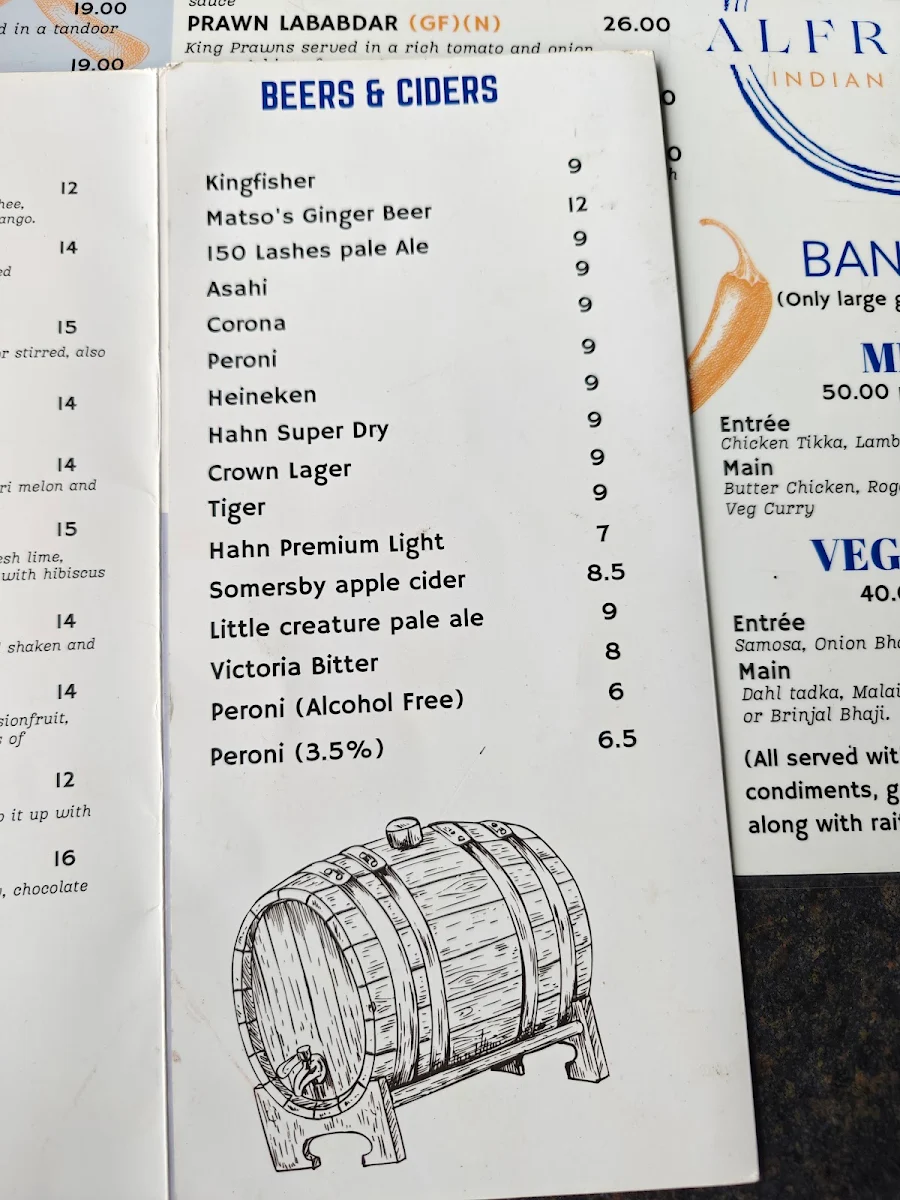 19.00
d in a tandoor
19.00
sauce
PRAWN LABABDAR (GF)(N) 26.00
King Prawns served in a rich tomato and onion
ALFR
INDIAN
12
hee,
ango.
14
ed
15
or stirred, also
14
14
ri melon and
15
esh lime,
with hibiscus
14
shaken and
14
sionfruit,
s of
12
o it up with
16
, chocolate
BEERS & CIDERS
Kingfisher 9
Matso's Ginger Beer 12
150 Lashes pale Ale 9
Asahi 9
Corona 9
Peroni 9
Heineken 9
Hahn Super Dry 9
Crown Lager 9
Tiger 9
Hahn Premium Light 7
Somersby apple cider 8.5
Little creature pale ale 9
Victoria Bitter 8
Peroni (Alcohol Free) 6
Peroni (3.5%) 6.5
BAN
(Only large g
M
50.00
Entrée
Chicken Tikka, Lamb
Main
Butter Chicken, Rog
Veg Curry
VEG
40.0
Entrée
Samosa, Onion Bha
Main
Dahl tadka, Malai
or Brinjal Bhaji.
(All served wit
condiments, g
along with rait